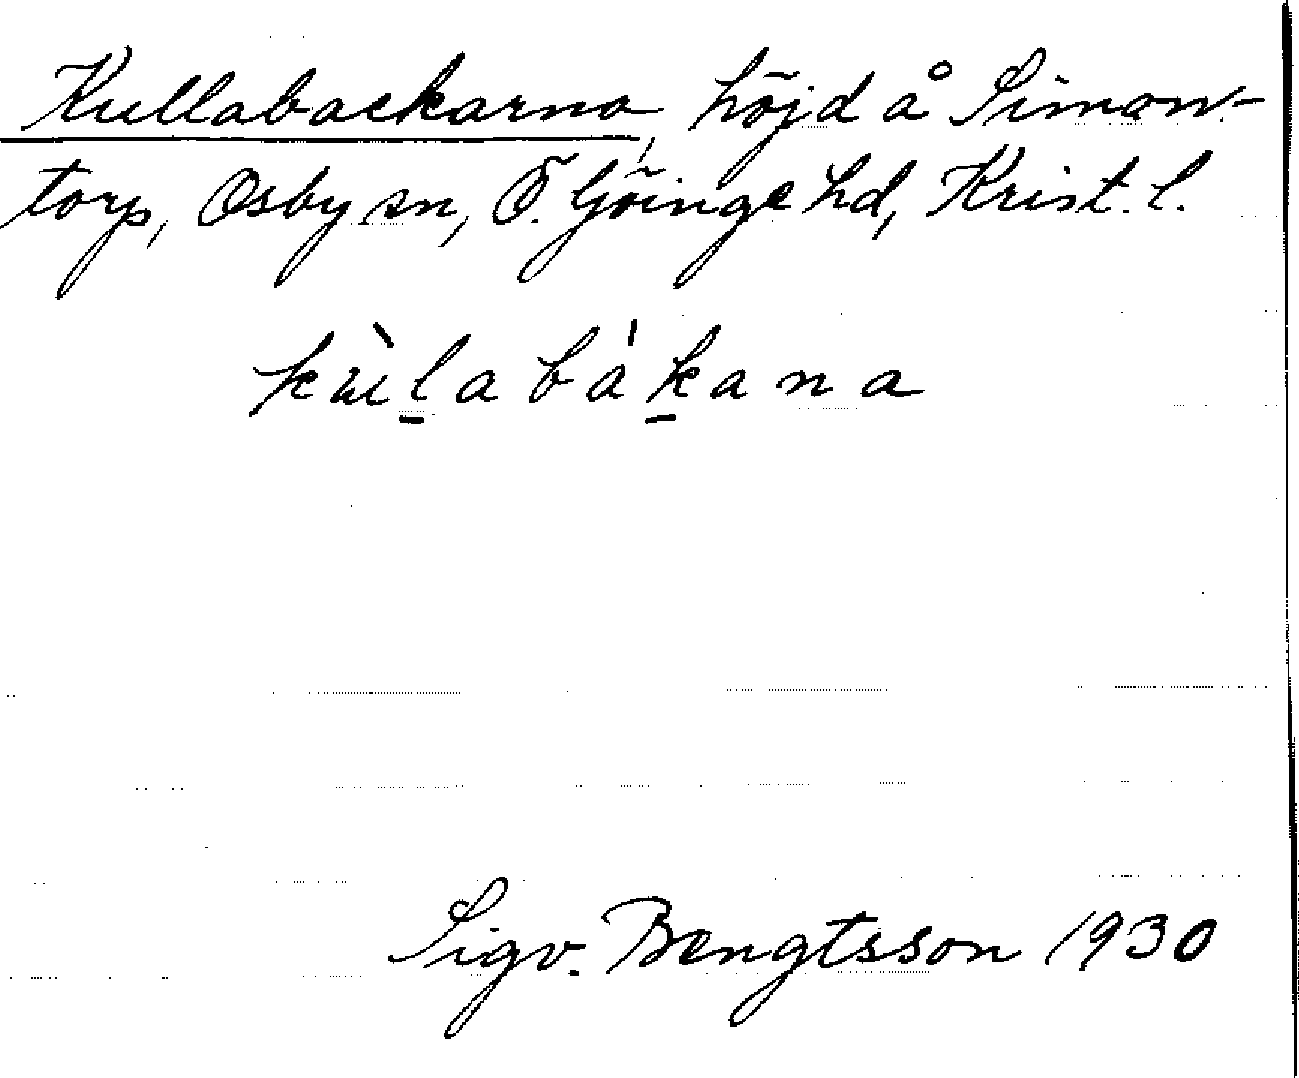 Kullabackarna, höjd å Simon-
torp, Osby sn, Ö. Göinge hd, Krist. l.
kùl̲abák̲ana
Sigv. Bengtsson 1930